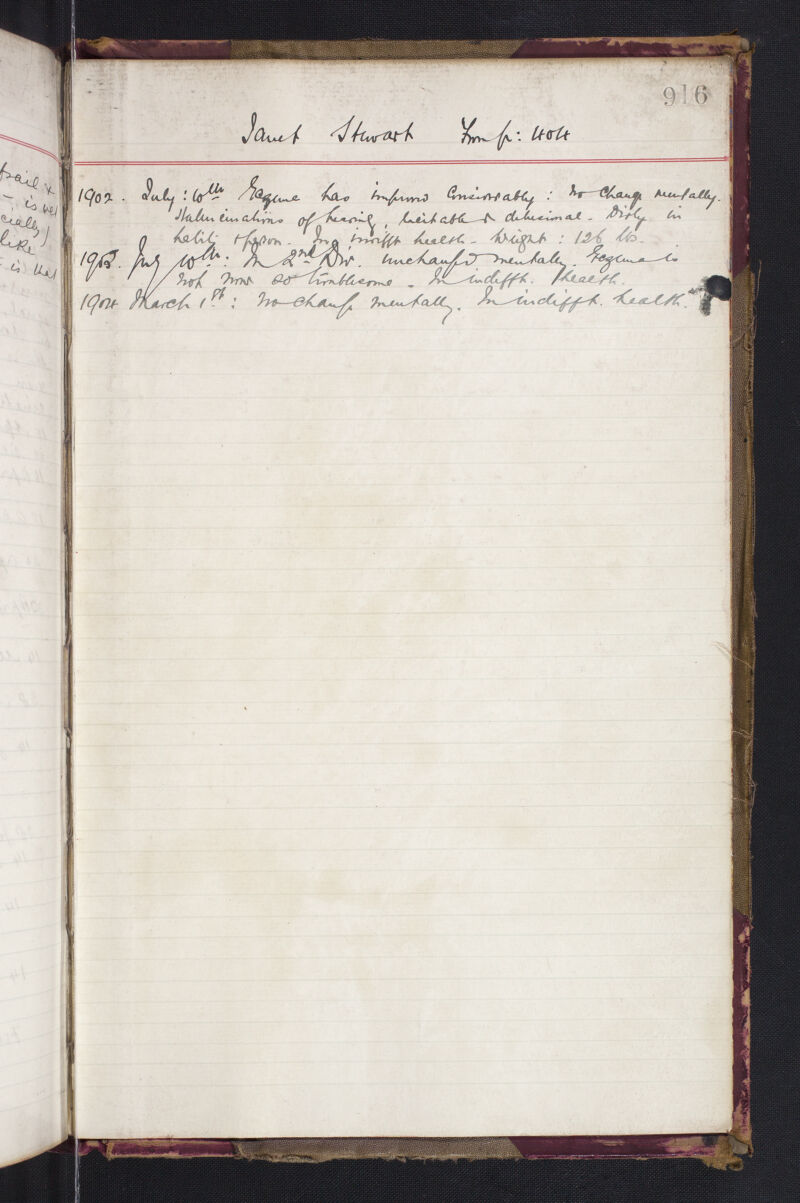 916
Janet Stewart From p: 404
1902. July: 10th Eczema has improved considerably: No change mentally.
Hallucinations of hearing, excitable & delusional. Dirty in
habits & person. In indifft health. Weight: 126 lbs.
1903. July 10th: In 2nd Div. unchanged mentally. Eczema is
not now so troublesome. In indifft. health.
1904 March 1st: No change mentally. In indifft. health.
frail &
is
cially)
like
is